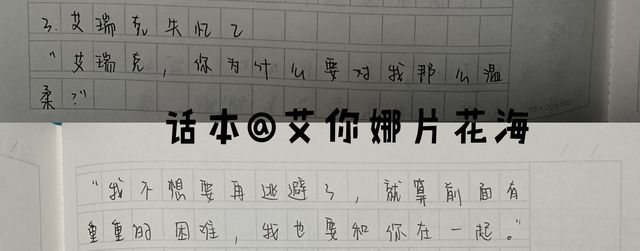 3.艾瑞克失忆了
“艾瑞克，你为什么要对我那么温
柔？”
15×20=300
话本@艾你娜片花海
“我不想要再逃避了，就算前面有
重重的困难，我也要和你在一起。”